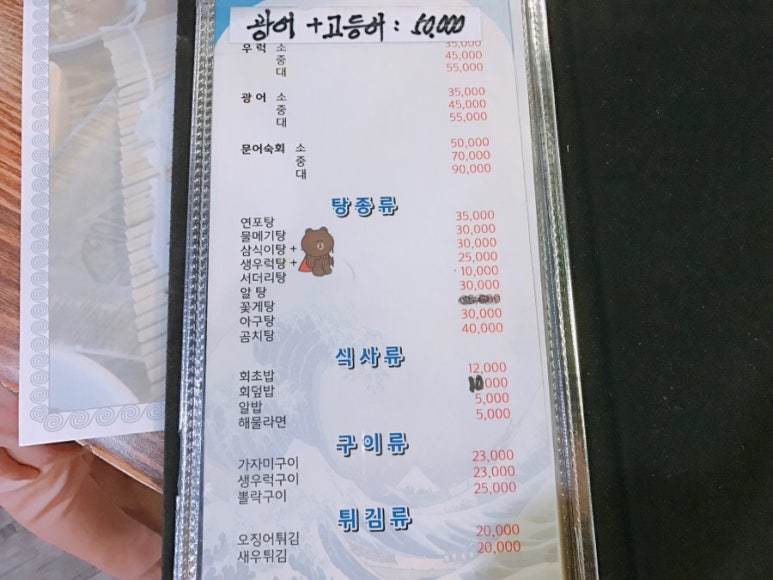 광어 +고등어 : 50,000
우 럭 소 35,000
중 45,000
대 55,000
광 어 소 35,000
중 45,000
대 55,000
문어숙회 소 50,000
중 70,000
대 90,000
탕 종 류
연포탕 35,000
물메기탕 30,000
삼식이탕 + 30,000
생우럭탕 + 25,000
서더리탕 10,000
알 탕 30,000
꽃게탕
아구탕 30,000
곰치탕 40,000
식 사 류
회초밥 12,000
회덮밥 10,000
알밥 5,000
해물라면 5,000
구 이 류
가자미구이 23,000
생우럭구이 23,000
뽈락구이 25,000
튀 김 류
오징어튀김 20,000
새우튀김 20,000